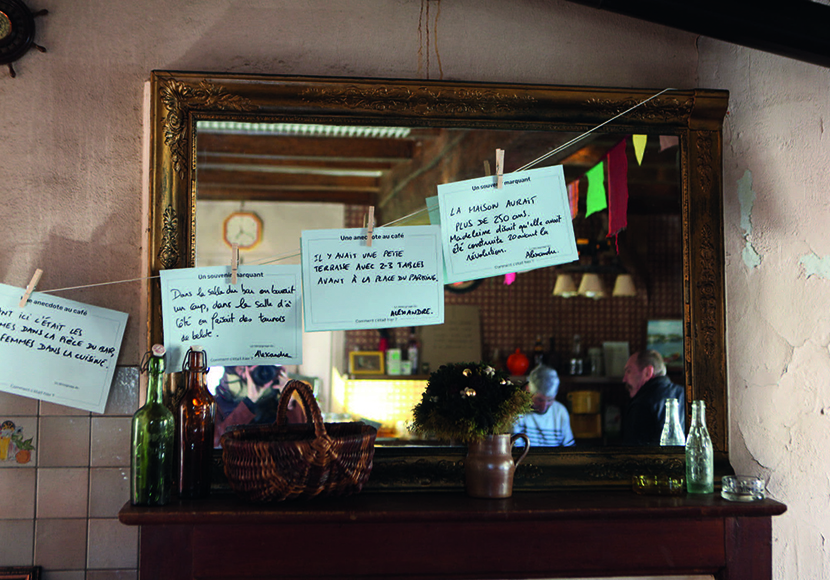 ne anecdote au café
ANT ICI C'ÉTAIT LES
MMES DANS LA PIÈCE DU BAR,
FEMMES DANS LA CUISINE.
Comment c'était hier ?
Un souvenir marquant
Dans la salle du bar en buvant
un coup, dans la salle d'à
côté on faisait des tournois
de belote.
Alexandre
Comment c'était hier ?
Une anecdote au café
IL Y AVAIT UNE PETITE
TERRASSE AVEC 2-3 TABLES
AVANT À LA PLACE DU PARKING.
ALEXANDRE.
Comment c'était hier ?
Un souvenir marquant
LA MAISON AURAIT
PLUS DE 250 ans.
Madeleine disait qu'elle avait
été construite 20 avant la
révolution.
Alexandre
Comment c'était hier ?